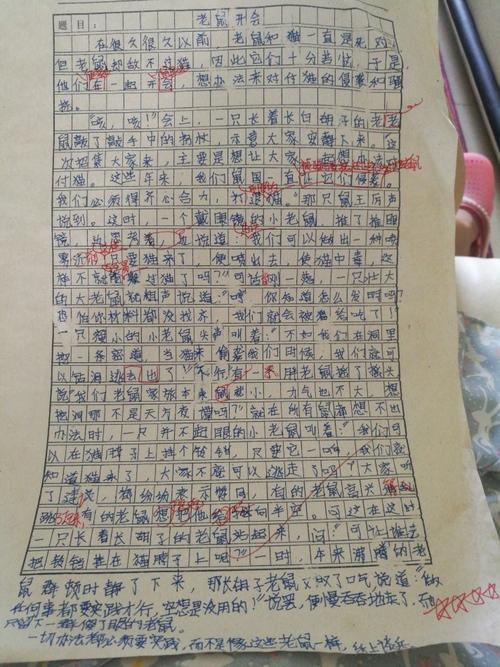 题目： 老鼠开会
在很久很久以前 老鼠和猫一直是死对
但老鼠把敌不过猫，因此它们十分苦恼，于是，
他们在一起开会，想办法来对付猫的侵袭和骚
扰。
“咳，咳！”会上，一只长着长白胡子的老老
鼠敲了敲手中的拐杖 示意大家安静下来。这
次招集大家来，主要是想让大家
付猫。这些年来，我们鼠国一直让它们侵袭。
我们必须得齐心合力，打退猫。”那只鼠王厉声
说到。这时，一个戴眼镜的小老鼠，推了推眼
镜，
只要猫来了，便喷出去，使猫中毒，这
样不就能难过猫了吗？”可话刚一落，一只壮大
的大老鼠就粗声说道：“哼 你知道怎么发明吗？
恐怕你材料都没找齐，我们就会被猫给吃了！”
一只瘦小的小老鼠尖声叫着：“不如我们在洞里
挖一条密道，当猫来偷袭我们时候，我们就可
以钻洞逃去也了”“不行”有一只胖老鼠摇了摇头
说“我们老鼠家族本来就小，力气也不大，想
挖洞那不是天方夜谭吗？”就在所有鼠都想不出
办法时，一只并不起眼的小老鼠叫着：“我们可
以在猫脖子上挂个铃铛，只要它一响，我们就
知道猫来了，大家不应可以逃走了吗？”大家听
了这话，都纷纷表示赞同，有的老鼠高兴得
跳起来，有的老鼠想把他给 向半空。可这在这时
一只长着长胡子的老鼠站起来，问：“可让谁去
把铃铛挂在猫脖子上呢？”一时，本来沸腾的老
鼠群顿时静了下来，那长胡子老鼠又叹了口气说道：“做
任何事都要实践才行，空想是没用的！”说罢，便慢吞吞地走了，而
只留下一群傻了眼的老鼠。
一切办法都必须要实践，而不是像这些老鼠一样，纸上谈兵。